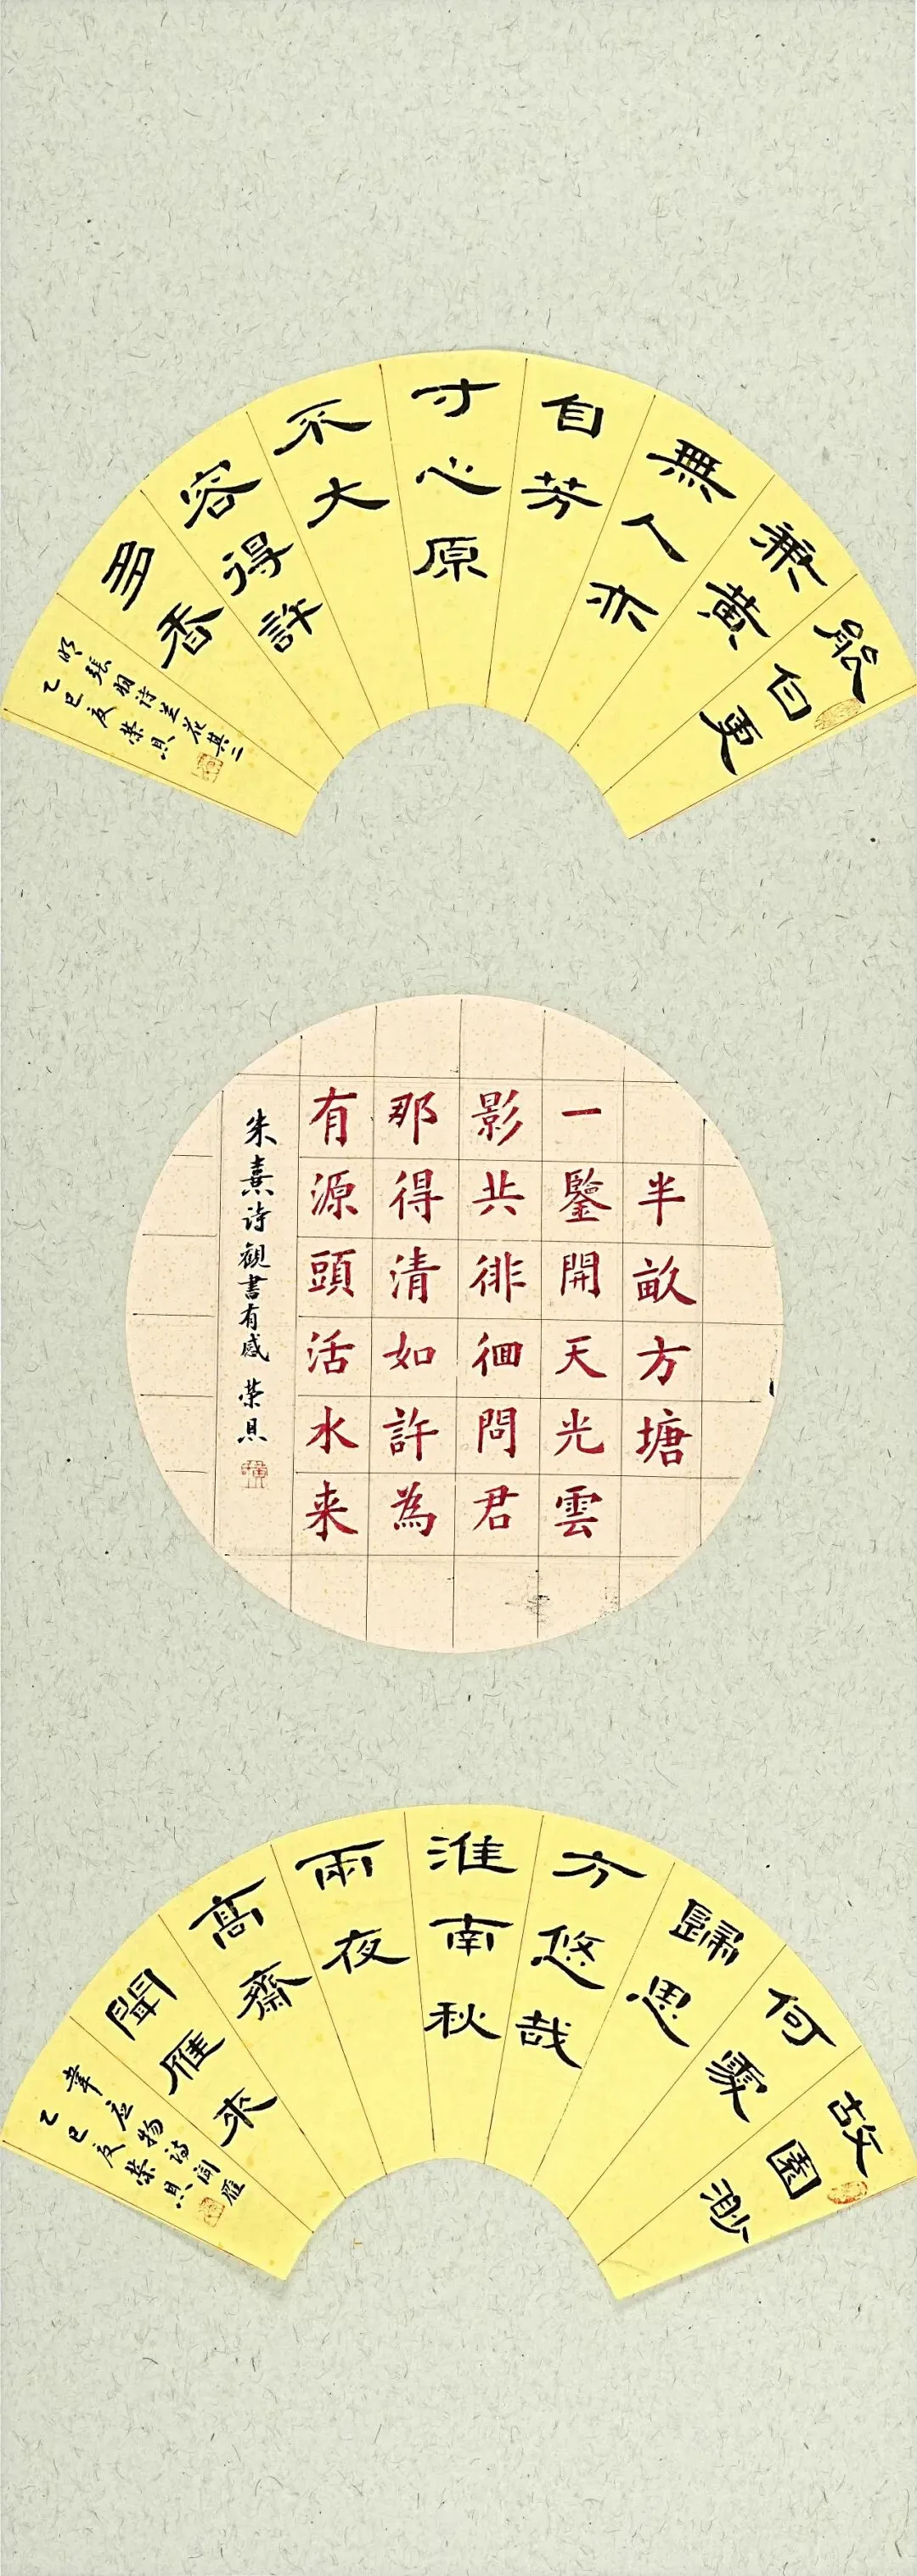 能白更
兼黄
無人亦
自芳
寸心原
不大
容得許
多香
明張羽诗兰花其二
乙巳夏荣
半畝方塘
一鑒開天光雲
影共徘徊問君
那得清如許為
有源頭活水来
朱熹诗觀書有感 荣
故園渺
何處
歸思
方悠哉
淮南秋
雨夜
高齋
聞雁來
韋应物诗闻雁
乙巳夏荣